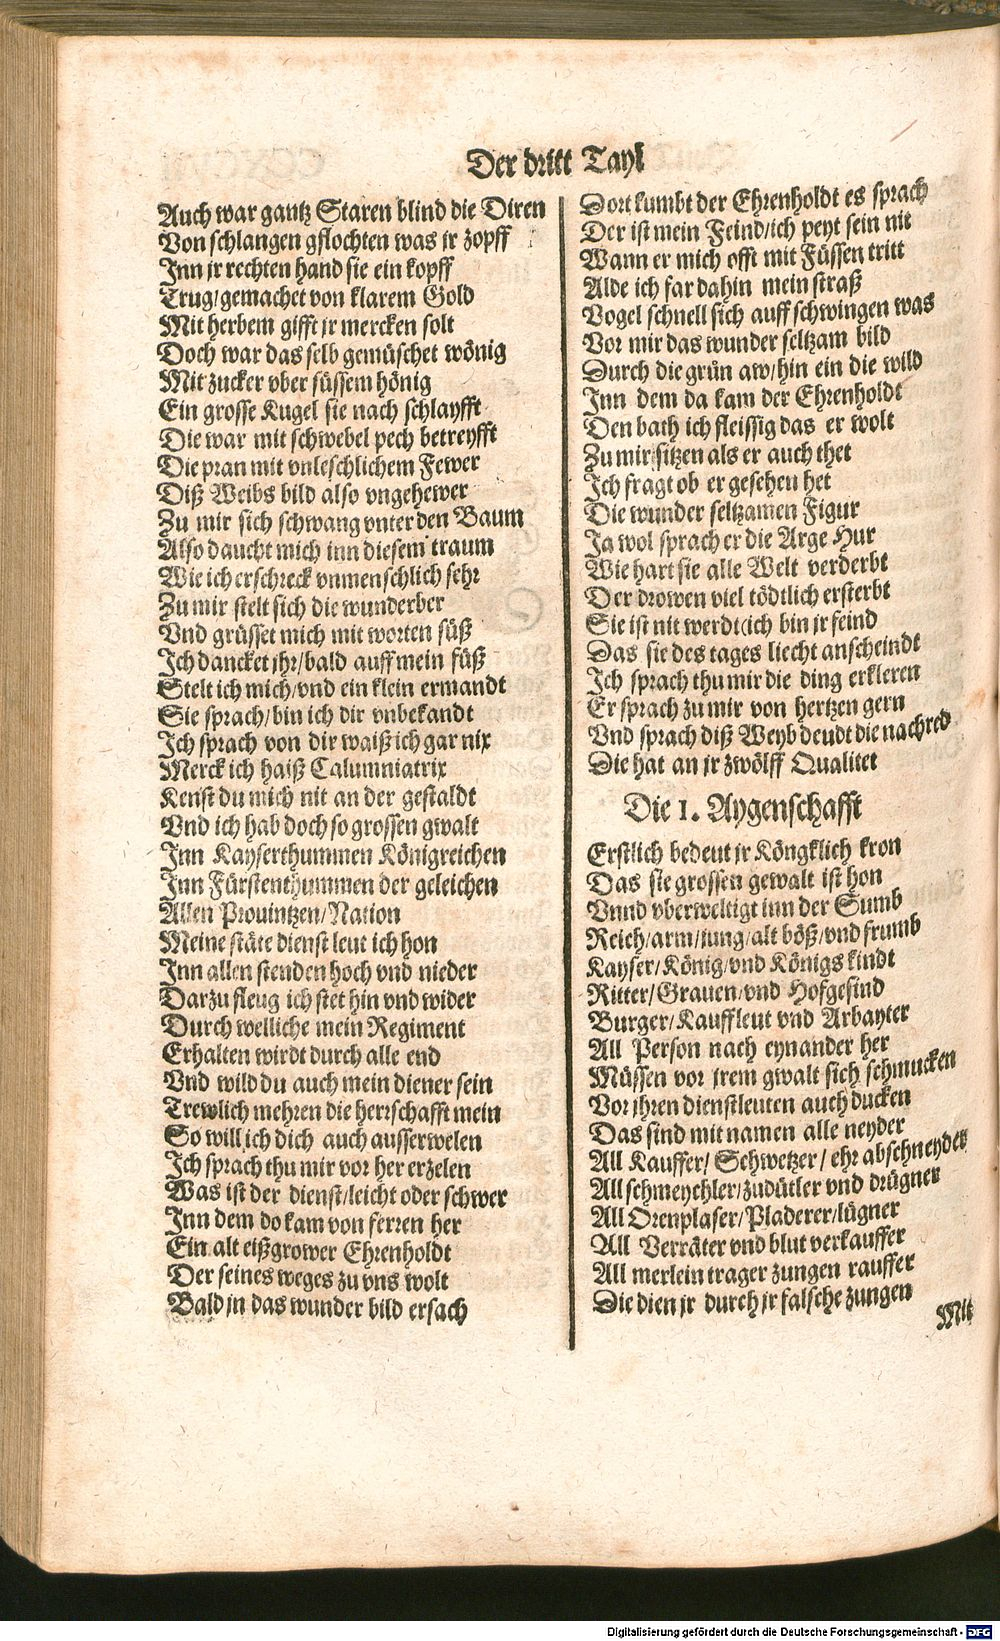 Der dritt Tayl
Auch war gantz Staren blind die Diren
Von schlangen gflochten was jr zopff
Inn jr rechten hand sie ein kopff
Trug/gemachet von klarem Gold
Mit herbem gifft jr mercken solt
Doch war das selb gemüschet wönig
Mit zucker vber süssem hönig
Ein grosse Kugel sie nach schlayfft
Die war mit schwebel pech betreyfft
Die pran mit vnleschlichem Fewer
Diß Weibs bild also vngehewer
Zu mir sich schwang vnter den Baum
Also daucht mich inn diesem traum
Wie ich erschreck vnmenschlich sehr
Zu mir stelt sich die wunderber
Vnd grüsset mich mit worten süß
Ich dancket jhr/bald auff mein füß
Stelt ich mich/vnd ein klein ermandt
Sie sprach/bin ich dir vnbekandt
Ich sprach von dir waiß ich gar nix
Merck ich haiß Calumniatrix
Kenst du mich nit an der gestaldt
Vnd ich hab doch so grossen gwalt
Inn Kayserthummen Königreichen
Inn Fürstenthummen der geleichen
Allen Prouintzen/Nation
Meine stäte dienst leut ich hon
Inn allen stenden hoch vnd nieder
Darzu fleug ich stet hin vnd wider
Durch welliche mein Regiment
Erhalten wirdt durch alle end
Vnd wild du auch mein diener sein
Trewlich mehren die herrschafft mein
So will ich dich auch ausserwelen
Ich sprach thu mir vor her erzelen
Was ist der dienst/leicht oder schwer
Inn dem do kam von ferren her
Ein alt eißgrower Ehrenholdt
Der seines weges zu vns wolt
Bald jn das wunder bild ersach
Dort kumbt der Ehrenholdt es sprach
Der ist mein Feind/ich peyt sein nit
Wann er mich offt mit Füssen tritt
Alde ich far dahin mein straß
Vogel schnell sich auff schwingen was
Vor mir das wunder seltzam bild
Durch die grün aw/hin ein die wild
Inn dem da kam der Ehrenholdt
Den bath ich fleissig das er wolt
Zu mir sitzen als er auch thet
Ich fragt ob er gesehen het
Die wunder seltzamen Figur
Ja wol sprach er die Arge Hur
Wie hart sie alle Welt verderbt
Der drowen viel tödtlich ersterbt
Sie ist nit werdt(ich bin jr feind
Das sie des tages liecht anscheindt
Ich sprach thu mir die ding erkleren
Er sprach zu mir von hertzen gern
Vnd sprach diß Weyb deudt die nachred
Die hat an jr zwölff Qualitet
Die 1. Aygenschafft
Erstlich bedeut jr Köngklich kron
Das sie grossen gewalt ist hon
Vnnd vberweltigt inn der Sumb
Reich/arm/jung/alt böß/vnd frumb
Kayser/König/vnd Königs kindt
Ritter/Grauen/vnd Hofgesind
Burger/Kauffleut vnd Arbayter
All Person nach eynander her
Müssen vor jrem gwalt sich schmucken
Vor jhren dienstleuten auch ducken
Das sind mit namen alle neyder
All Kauffer/ Schwetzer/ ehr abschneyder
All schmeychler/zudütler vnd drügner
All Orenplaser/Pladerer/lügner
All Verräter vnd blut verkauffer
All merlein trager zungen rauffer
Die dien jr durch jr falsche zungen
Mit
Digitalisierung gefördert durch die Deutsche Forschungsgemeinschaft - DFG